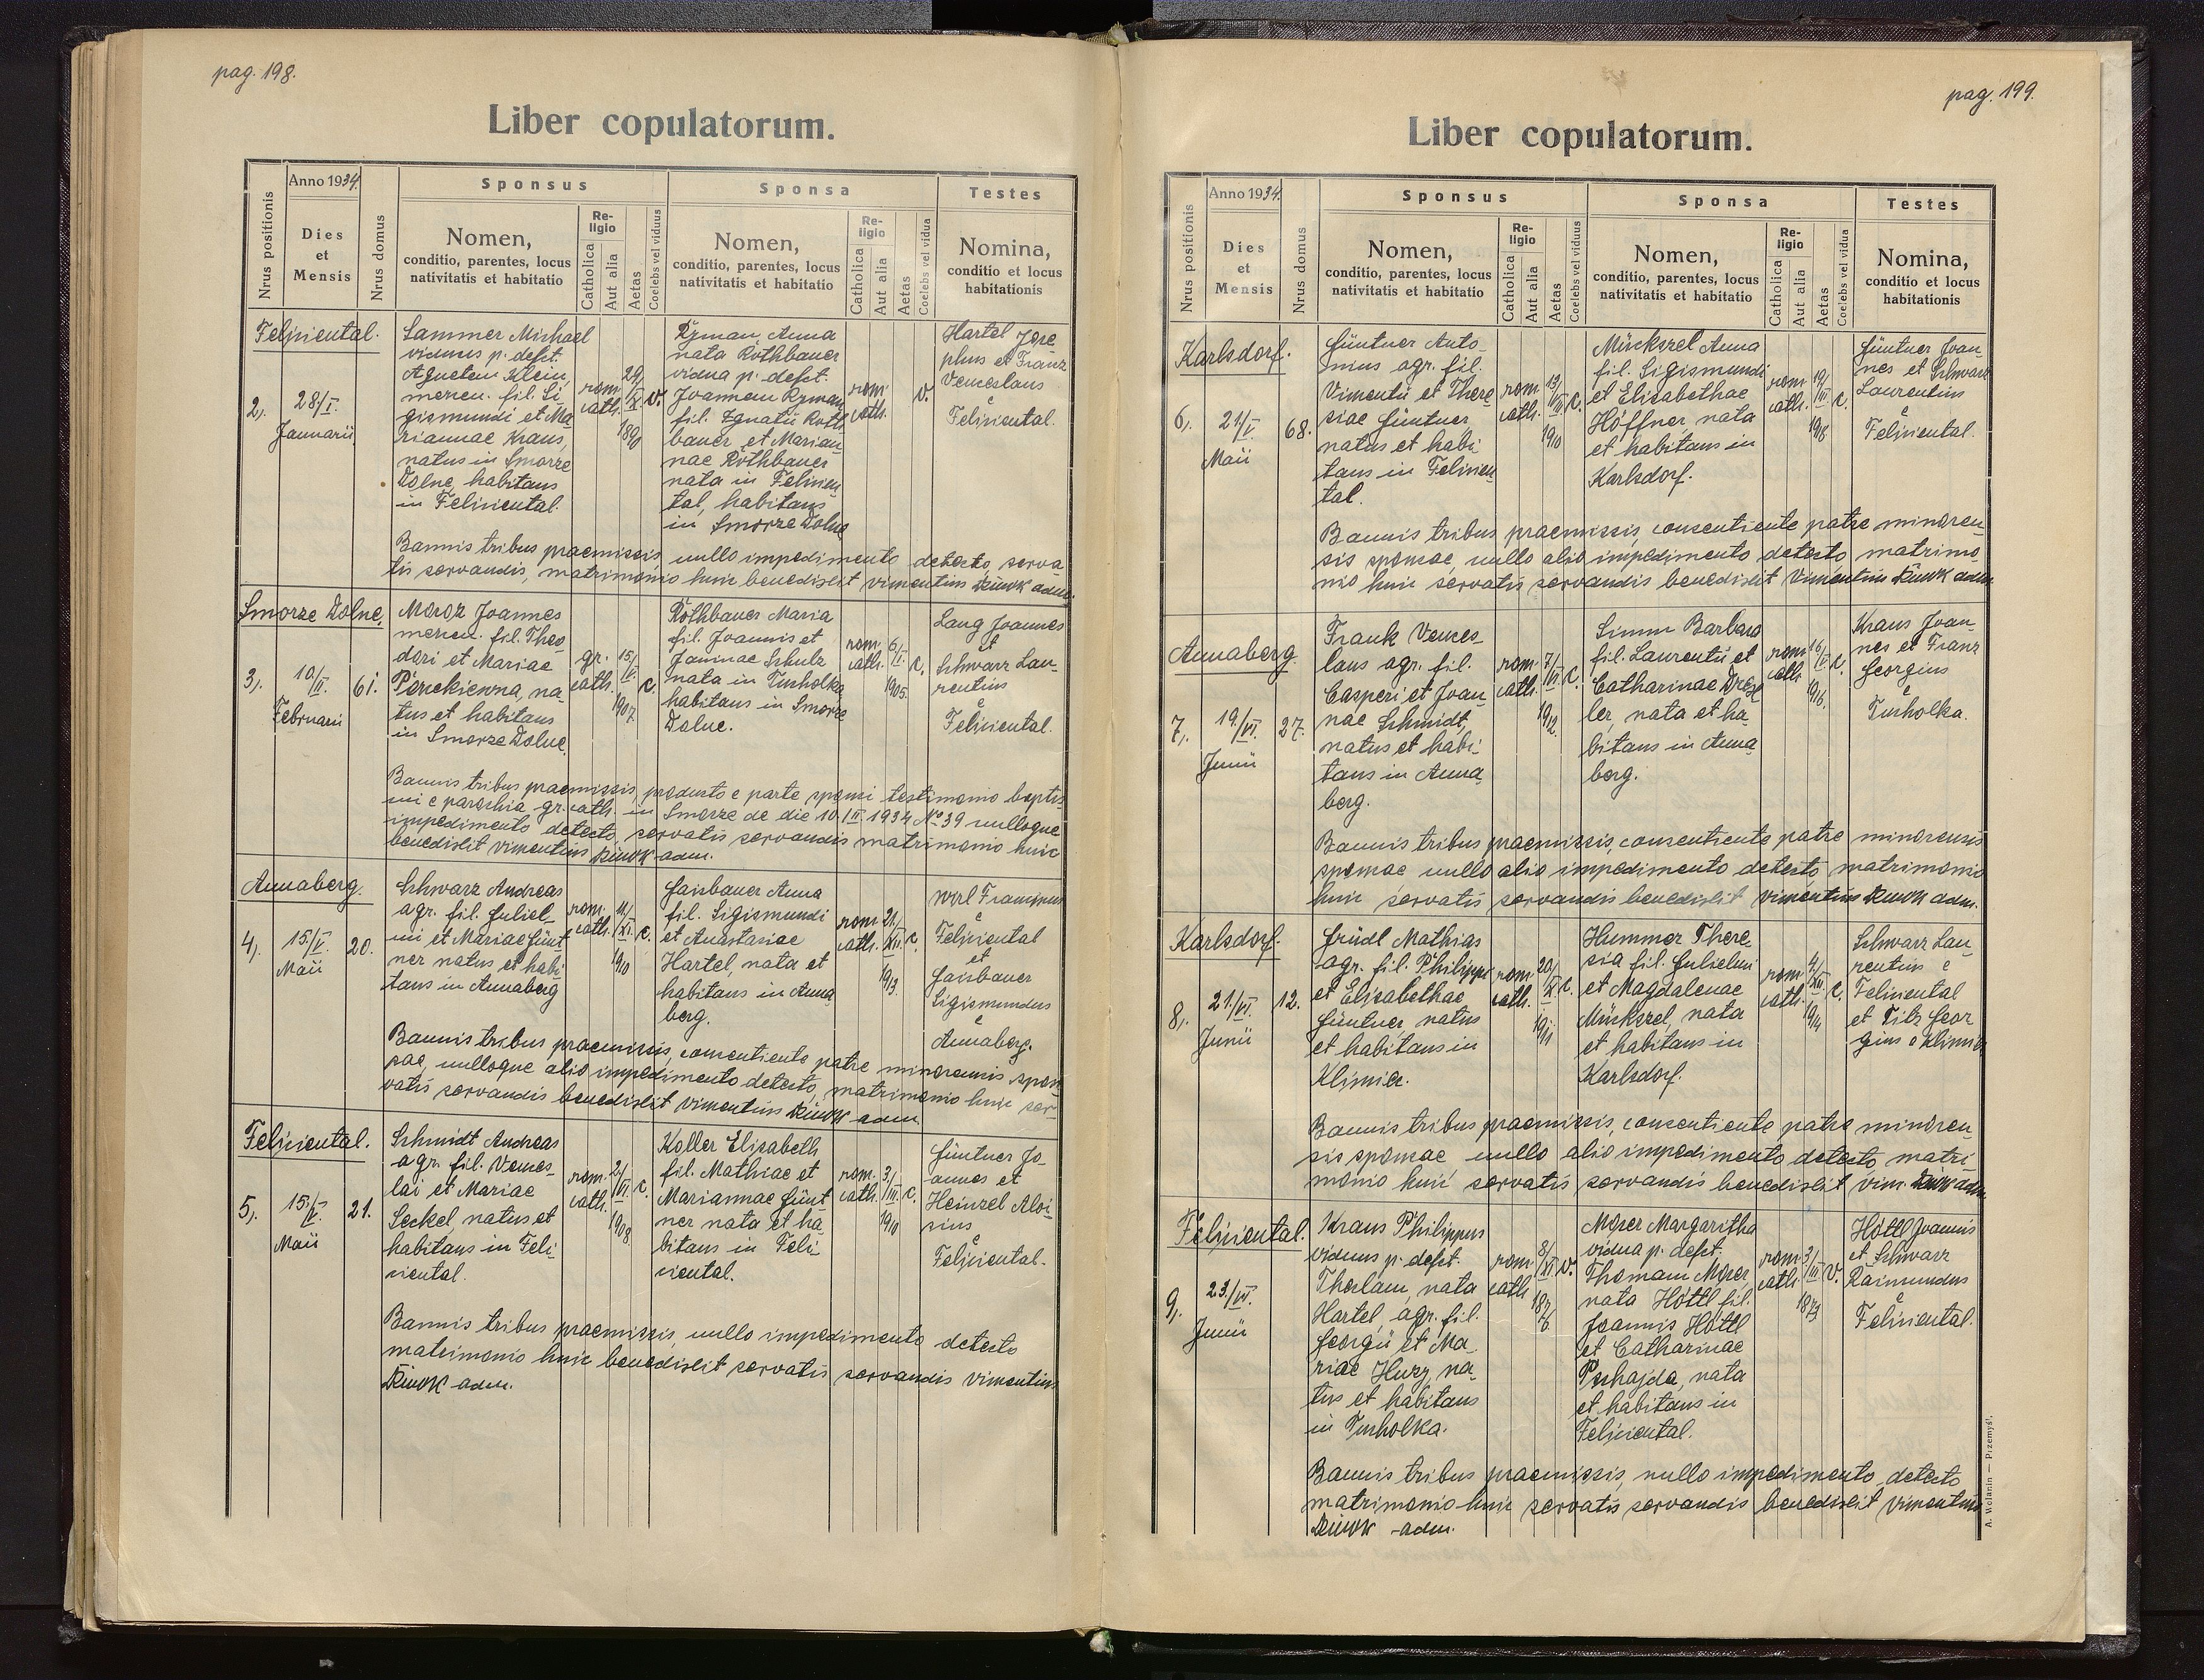 pag. 198.
Liber copulatorum.
Nrus positionis
Anno 1934.
Dies
et
Mensis
Nrus domus
Sponsus
Nomen,
conditio, parentes, locus
nativitatis et habitatio
Re-
ligio
Catholica
Aut alia
Aetas
Coelebs vel viduus
Sponsa
Nomen,
conditio, parentes, locus
nativitatis et habitatio
Re-
ligio
Catholica
Aut alia
Aetas
Coelebs vel vidua
Testes
Nomina,
conditio et locus
habitationis
Feliciental.
2,.
28/I.
Januarii
Sammer Michael
viduus p. defct.
Agnetem Klein,
mercen. fil. Si-
gismundi et Ma
riannae Kraus,
natus in Smorze
Dolne, habitans
in Feliciental.
rom.
cath.
29/
X
1890
v.
Ryman Anna
nata Rothbauer
vidua p. defct.
Joannem Ryman
fil. Ignatii Roth
bauer et Marian-
nae Rothbauer
nata in Felicien
tal, habitans
in Smorze Dolne
rom.
cath.
v.
Hartel Jose
phus et Franz
Venceslaus
e
Feliciental.
Bannis tribus praemissis, nullo impedimento detecto, serva
tis servandis, matrimonio huic benedixit Vincentius adm.
Smorze Dolne.
3,.
10/II.
Februarii
61.
Moroz Joannes
mercen. fil. Theo
dori et Mariae
na-
tus et habitans
in Smorze Dolne.
gr.
cath.
15/
V.
1907.
c.
Rothbauer Maria
fil. Joannis et
Janinae Schulz
nata in Tucholka
habitans in Smorze
Dolne.
rom.
cath.
6/
I.
1905.
c.
Lang Joannes
et
Schwarz Lau-
rentius
e
Feliciental.
Bannis tribus praemissis, producto e parte sponsi testimonio baptis
mi e parochia gr. cath. in Smorze de die 10/II 1934 No 39 nulloque
impedimento detecto, servatis servandis matrimonio huic
benedixit Vincentius adm.
Annaberg.
4,.
15/V.
Maii
20.
Schwarz Andreas
agr. fil. Guliel-
mi et Mariae Günt
ner natus et habi
tans in Annaberg
rom.
cath.
11/
XI.
1910
c.
Gaisbauer Anna
fil. Sigismundi
et Anastasiae
Hartel, nata et
habitans in Anna
berg.
rom.
cath.
21/
XII.
1913.
c.
Wirl Franciscus
e
Feliciental
et
Gaisbauer
Sigismundus
e
Annaberg.
Bannis tribus praemissis, consentiente patre minorennis spon
sae, nulloque alio impedimento detecto, matrimonio huic ser-
vatis servandis benedixit Vincentius adm
Feliciental.
5,.
15/V.
Maii
21.
Schmidt Andreas
agr. fil. Vences-
lai et Mariae
Seckel, natus et
habitans in Feli-
ciental.
rom.
cath.
2/
VI.
1908.
c.
Koller Elisabeth
fil. Mathiae et
Mariannae Günt
ner nata et ha
bitans in Feli
ciental.
rom.
cath.
3/
III.
1910
c.
Güntner Jo-
annes et
Heinzel Aloi-
sius
e
Feliciental.
Bannis tribus praemissis, nullo impedimento detecto
matrimonio huic benedixit servatis servandis Vincentius
adm.
pag. 199.
Liber copulatorum.
Nrus positionis
Anno 1934.
Dies
et
Mensis
Nrus domus
Sponsus
Nomen,
conditio, parentes, locus
nativitatis et habitatio
Re-
ligio
Catholica
Aut alia
Aetas
Coelebs vel viduus
Sponsa
Nomen,
conditio, parentes, locus
nativitatis et habitatio
Re-
ligio
Catholica
Aut alia
Aetas
Coelebs vel vidua
Testes
Nomina,
conditio et locus
habitationis
Karlsdorf.
6,.
21/V.
Maii
68.
Güntner Anto-
nius agr. fil.
Vincentii et There
siae Güntner,
natus et habi
tans in Felicien
tal.
rom.
cath.
13/
VIII
1910
c.
Mückszel Anna
fil. Sigismundi
et Elisabethae
Höffner, nata
et habitans in
Karlsdorf.
rom.
cath.
19/
III
1918
c.
Güntner Joan-
nes et Schwarz
Laurentius
e
Feliciental.
Bannis tribus praemissis, consentiente patre minoren-
sis sponsae, nullo alio impedimento detecto, matrimo
nio huic servatis servandis benedixit Vincentius adm.
Annaberg.
7,.
19/VI.
Junii
27.
Frank Vences-
laus agr. fil.
Casperi et Joan-
nae Schmidt,
natus et habi-
tans in Anna
berg.
rom.
cath.
7/
VI
1912.
c.
Simm Barbara
fil. Laurentii et
Catharinae Drex
ler, nata et ha
bitans in Anna
berg.
rom.
cath.
16/
V
1916.
c.
Kraus Joan-
nes et Franz
Georgius
e
Tucholka.
Bannis tribus praemissis, consentiente patre minorensis
sponsae nullo alio impedimento detecto matrimonio
huic servatis servandis benedixit Vincentius adm.
Karlsdorf.
8,.
21/VI.
Junii
12.
Gründl Mathias
agr. fil. Philippi
et Elisabethae
Güntner, natus
et habitans in
Klimiec.
rom.
cath.
20/
X.
1911
c.
Hummer There
sia fil. Gulielmi
et Magdalenae
Mückszel, nata
et habitans in
Karlsdorf.
rom.
cath.
4/
XII.
1914
c.
Schwarz Lau
rentius e
Feliciental
et Tilz Geor
gius e Klimiec
Bannis tribus praemissis, consentiente patre minoren-
sis sponsae nullo alio impedimento detecto, matri-
monio huic servatis servandis benedixit Vinc. adm.
Feliciental.
9,.
23/VI.
Junii
Kraus Philippus
viduus p. defct.
Theclam, nata
Hartel, agr. fil.
Georgii et Ma-
riae Hurz, na-
tus et habitans
in Tucholka.
rom.
cath.
8/
XI
1876
v.
Moser Margaritha
vidua p. defct.
Thomam Moser,
nata Höttl fil.
Joannis Höttl
et Catharinae
nata
et habitans in
Feliciental.
rom.
cath.
3/
III
1873
v.
Höttl Joannis
et Schwarz
Raimundus
e
Feliciental.
Bannis tribus praemissis, nullo impedimento detecto
matrimonio huic servatis servandis benedixit Vincentius
adm.
A. Wolanin — Przemyśl.